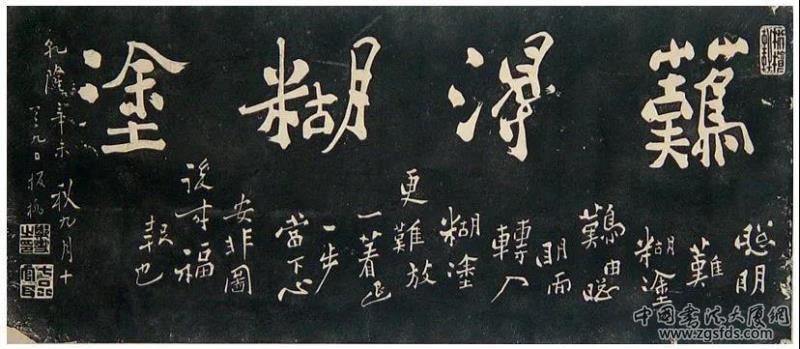 難得糊塗
聰明
難
糊塗
難由聰
明而
轉入
糊塗
更難放
一着退
一步
當下心
安非圖
後來福
報也
乾隆辛未秋九月十
又九日板橋
七品官耳
中國書法大厦網
www.zgsfds.com